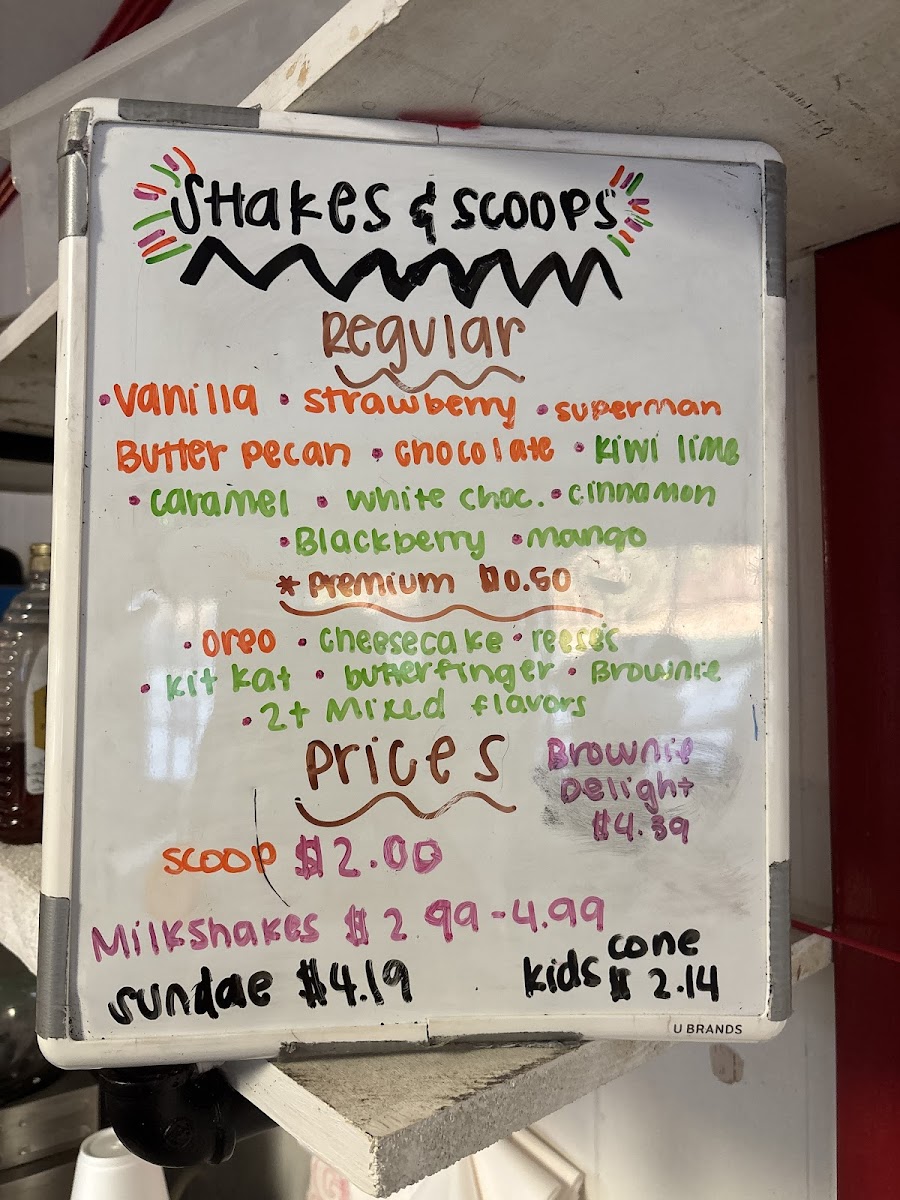 SHakes & SCOOPS
Regular
•Vanilla • strawberry •superman
Butter pecan • chocolate • Kiwi lime
• caramel • white choc. • cinnamon
•Blackberry •mango
*Premium $0.50
• oreo • cheesecake • reese's
• kit kat • butterfinger • Brownie
• 2+ Mixed flavors
Prices
Brownie
Delight
$4.39
scoop $2.00
Milkshakes $2.99-4.99
sundae $4.19
kids cone
$2.14
U BRANDS